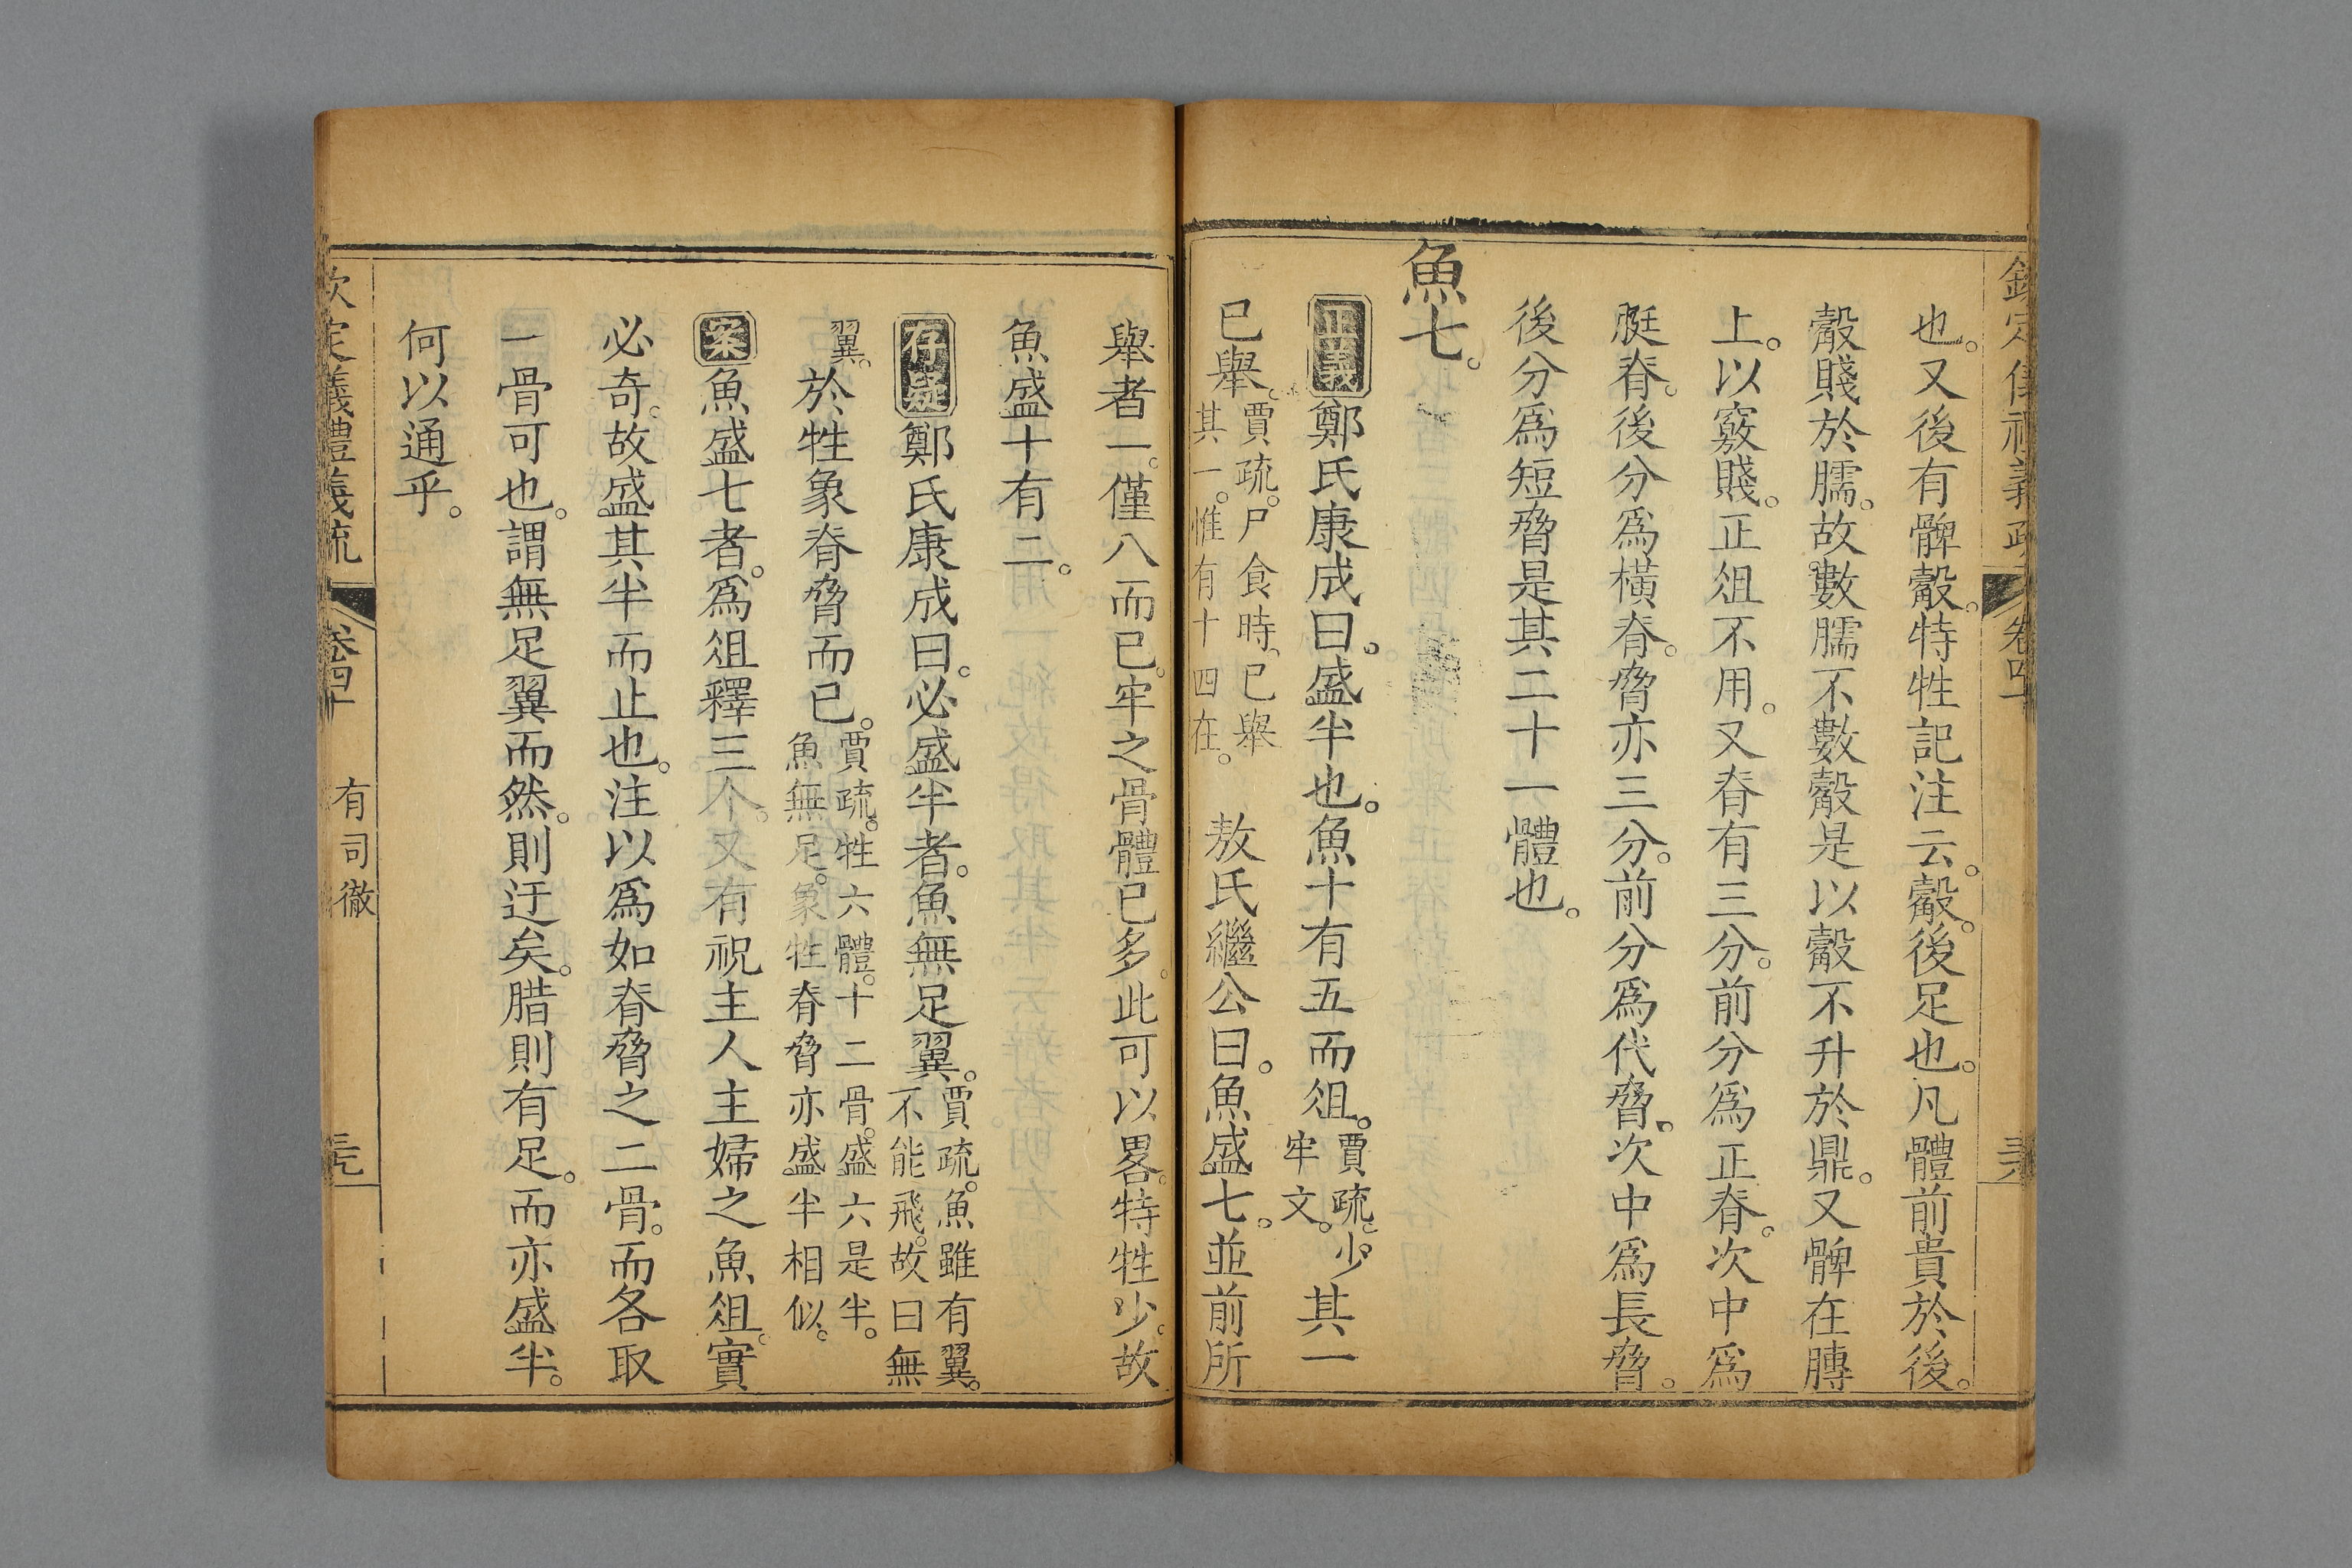 欽定儀禮義疏 卷四十 三八
也。又後有髀觳。特牲記注云。觳。後足也。凡體前貴於後。
觳賤於臑。故數臑不數觳是以觳不升於鼎。又髀在膞
上。以竅賤。正俎不用。又脊有三分。前分爲正脊。次中爲
脡脊。後分爲橫脊。脅亦三分。前分爲代脅。次中爲長脅。
後分爲短脅是其二十一體也。
魚七。
正義鄭氏康成曰。盛半也。魚十有五而俎。賈疏。少牢文。其一
已舉。賈疏。尸食時。已舉其一。惟有十四在。 敖氏繼公曰。魚盛七。並前所
舉者一。僅八而已。牢之骨體已多。此可以畧。特牲少。故
魚盛十有二。
存疑鄭氏康成曰。必盛半者。魚無足翼。賈疏。魚雖有翼。不能飛。故曰無
翼。於牲象脊脅而已。賈疏。牲六體。十二骨。盛六是半。魚無足。象牲脊脅亦盛半相似。
案魚盛七者。爲俎釋三个。又有祝主人主婦之魚俎。實
必奇。故盛其半而止也。注以爲如脊脅之二骨。而各取
一骨可也。謂無足翼而然。則迂矣。腊則有足。而亦盛半。
何以通乎。
欽定儀禮義疏 卷四十 有司徹 三九